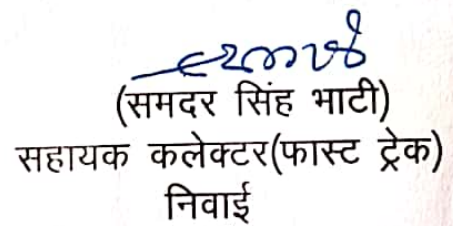 (समदर सिंह भाटी)
सहायक कलेक्टर(फास्ट ट्रेक)
निवाई